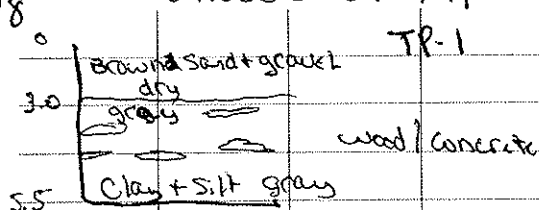 0
TP-1
Brown Sand + gravel
dry
3.0
gray
wood / Concrete
Clay + Silt gray
5.5